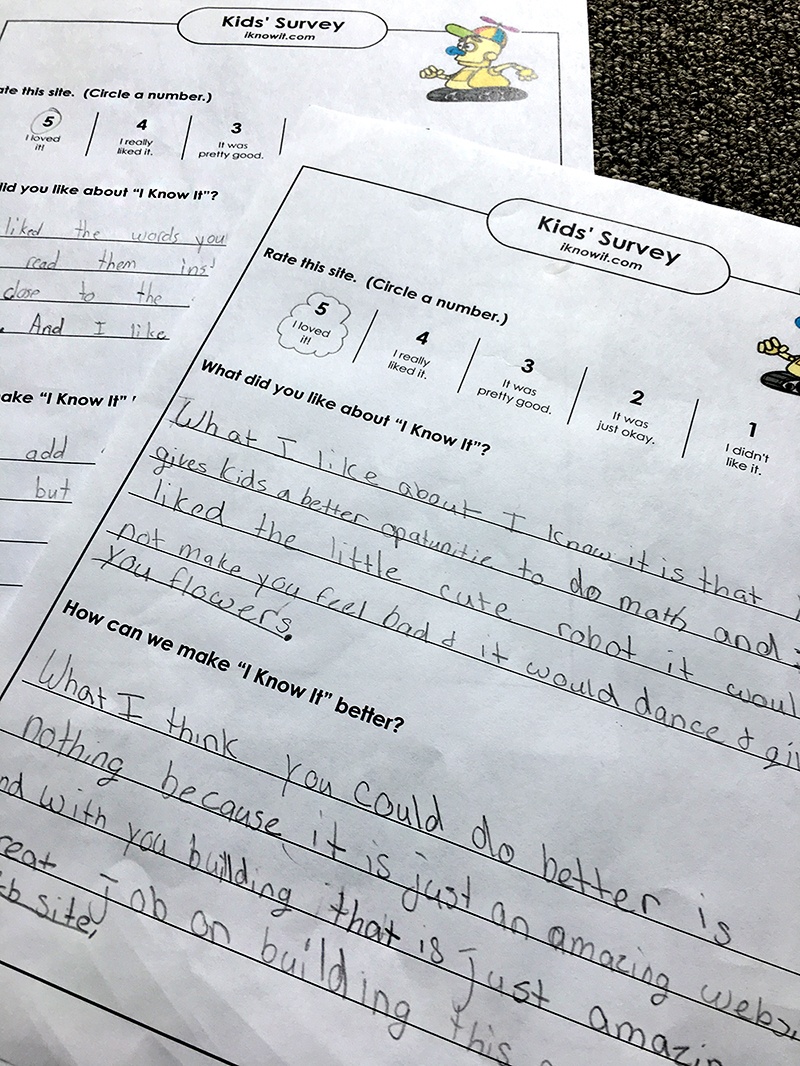 Kids' Survey
iknowit.com
ate this site. (Circle a number.)
5 4 3
I loved it! I really liked it. It was pretty good.
did you like about "I Know It"?
liked the words you
read them ins
close to the
. And I like
ake "I Know It"
add
but
Kids' Survey
iknowit.com
Rate this site. (Circle a number.)
5 4 3 2 1
I loved it! I really liked it. It was pretty good. It was just okay. I didn't like it.
What did you like about "I Know It"?
What I like about I know it is that i
gives kids a better opatunitie to do math and I
liked the little cute robot it woul
not make you feel bad & it would dance & giv
you flowers.
How can we make "I Know It" better?
What I think you could do better is
nothing because it is just an amazing webs
nd with you building that is just amazin
reat job on building this
eb site,